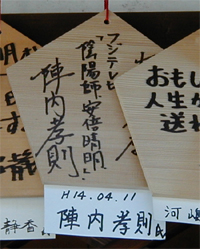 フジテレビ
「陰陽師 安倍晴明」
陣内孝則
H14.04.11
陣内孝則氏
おもし
人生が
送れ
河嶋
静香